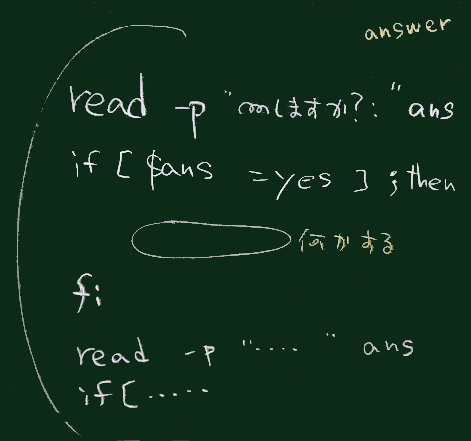 answer
read -p "mしますか?: "ans
if [ $ans = yes ] ; then
何かする
fi
read -p "...." ans
if [ .....